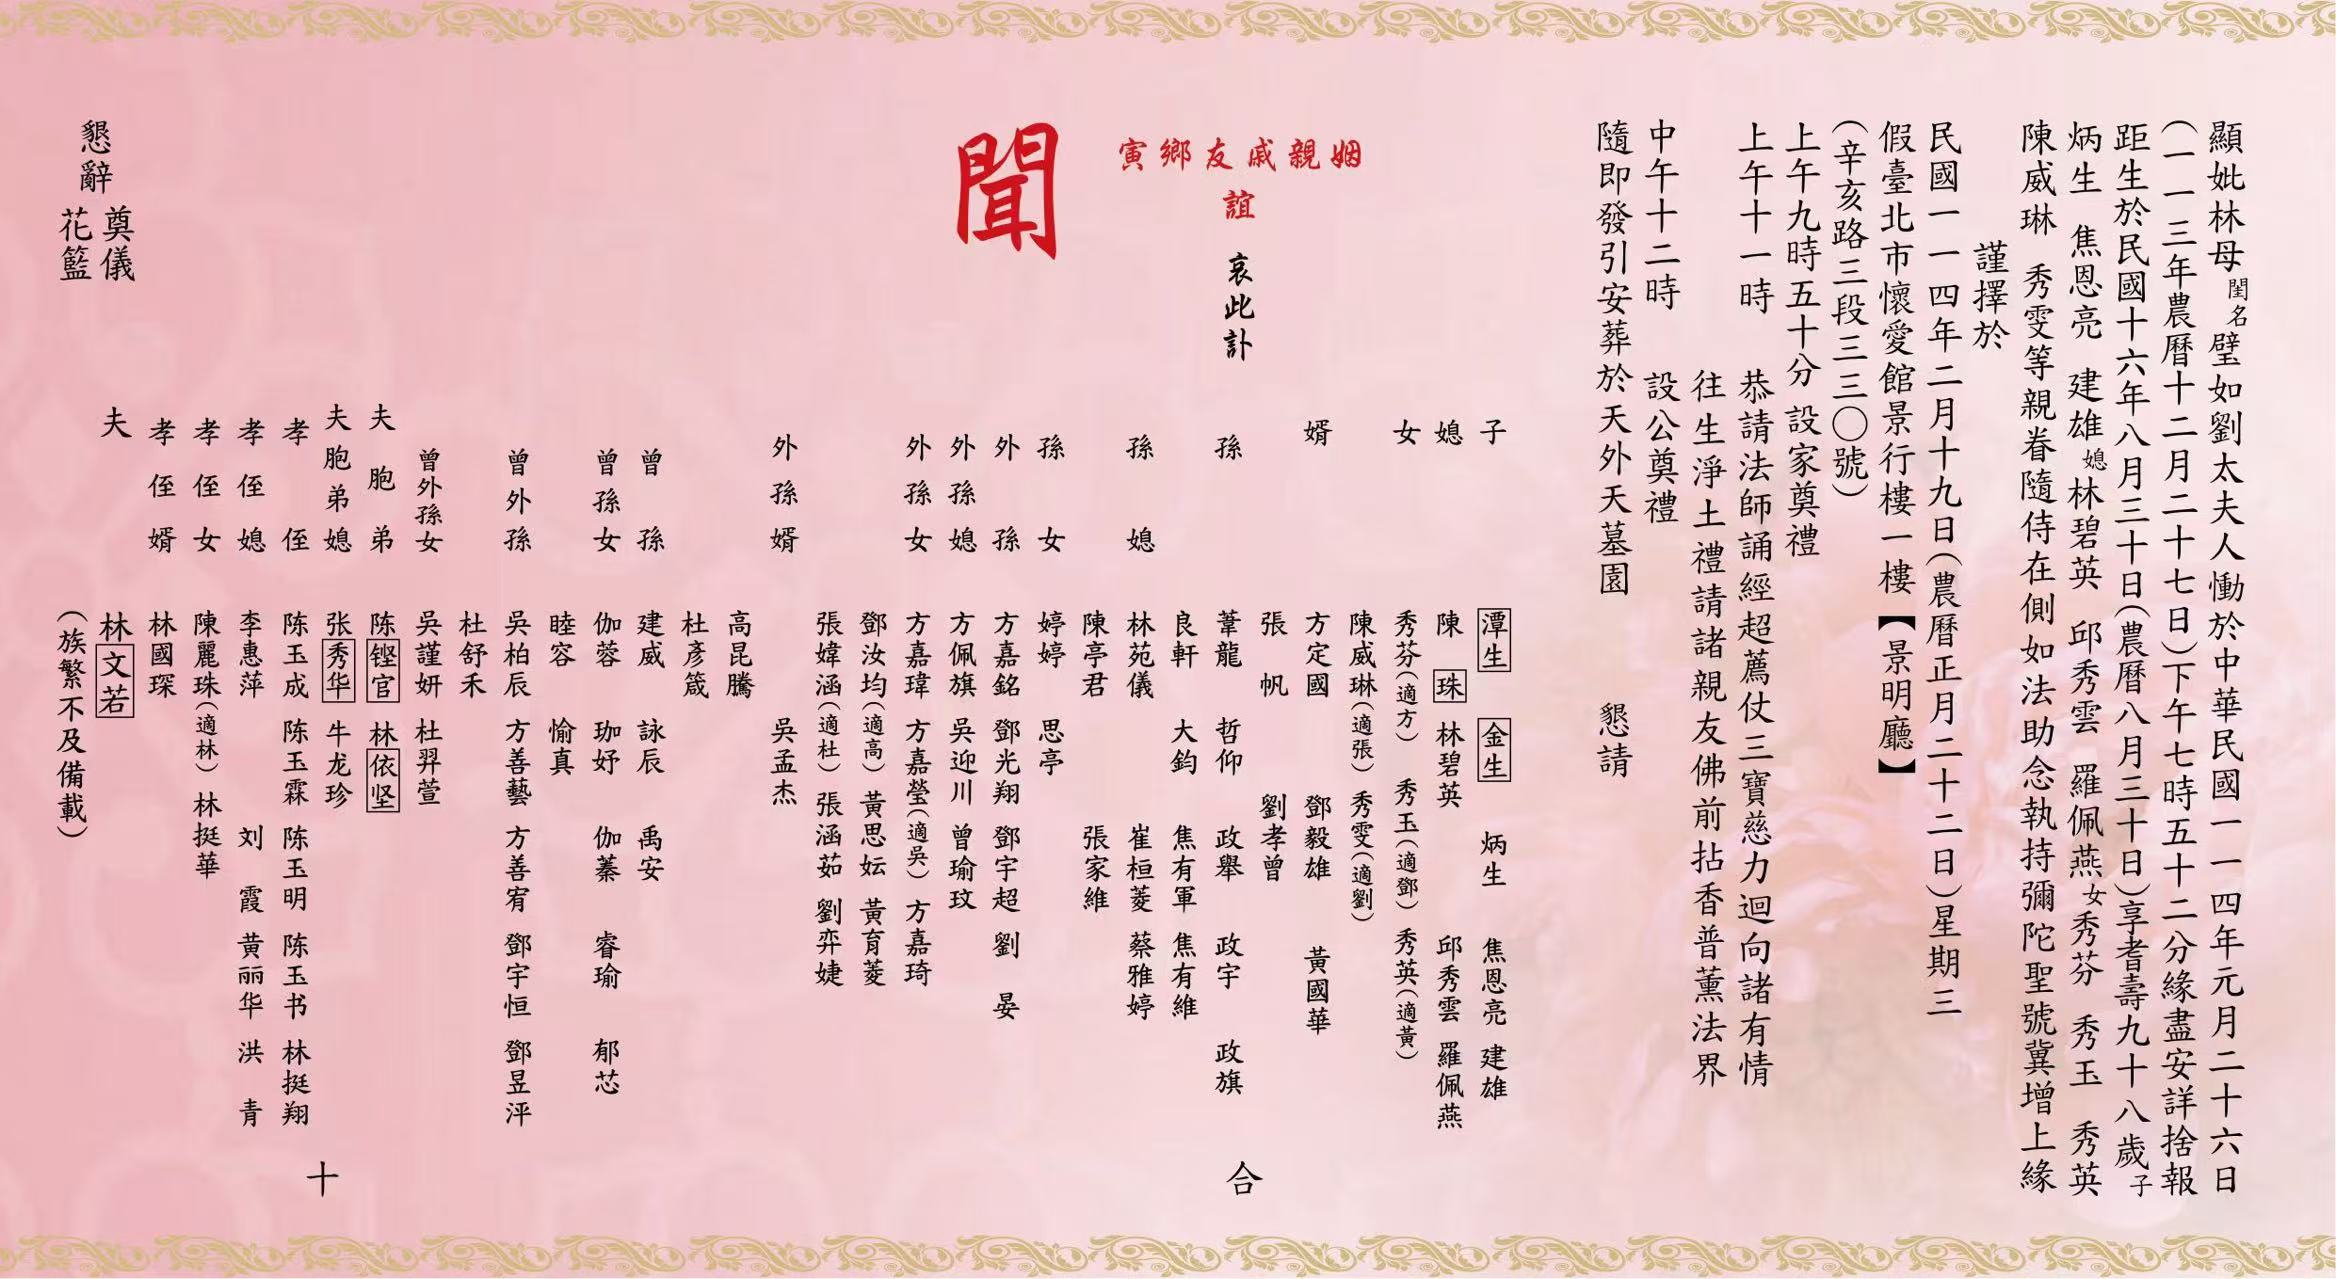 顯妣林母閨名璧如劉太夫人慟於中華民國一一四年元月二十六日
(一一三年農曆十二月二十七日)下午七時五十二分緣盡安詳捨報
距生於民國十六年八月三十日(農曆八月三十日)享耆壽九十八歲子
炳生 焦恩亮 建雄媳林碧英 邱秀雲 羅佩燕女秀芬 秀玉 秀英
陳威琳 秀雯等親眷隨侍在側如法助念執持彌陀聖號冀增上緣
謹擇於
民國一一四年二月十九日(農曆正月二十二日)星期三
假臺北市懷愛館景行樓一樓【景明廳】
(辛亥路三段三三〇號)
上午九時五十分 設家奠禮
上午十一時 恭請法師誦經超薦仗三寶慈力迴向諸有情
往生淨土禮請諸親友佛前拈香普薰法界
中午十二時 設公奠禮
隨即發引安葬於天外天墓園 懇請
子 潭生 金生 炳生 焦恩亮 建雄
媳 陳珠 林碧英 邱秀雲 羅佩燕
女 秀芬(適方) 秀玉(適鄧) 秀英(適黃)
陳威琳(適張) 秀雯(適劉)
婿 方定國 鄧毅雄 黃國華
張帆 劉孝曾
姻親戚友鄉寅
誼 哀此訃
孫 葦龍 哲仰 政舉 政宇 政旗
合
良軒 大鈞 焦有軍 焦有維
孫媳 林苑儀 崔桓菱 蔡雅婷
陳亭君 張家維
聞
孫女 婷婷 思亭
外孫 方嘉銘 鄧光翔 鄧宇超 劉晏
外孫媳 方佩旗 吳迎川 曾瑜玟
外孫女 方嘉瑋 方嘉瑩(適吳) 方嘉琦
鄧汝均(適高) 黃思妘 黃育菱
張媁涵(適杜) 張涵茹 劉弈婕
外孫婿 吳孟杰
高昆騰
杜彥箴
曾孫 建威 詠辰 禹安
曾孫女 伽蓉 珈妤 伽蓁 睿瑜 郁芯
睦容 愉真
曾外孫 吳柏辰 方善藝 方善宥 鄧宇恒 鄧昱泙
杜舒禾
曾外孫女 吳謹妍 杜羿萱
夫胞弟 陈铿官 林依坚
夫胞弟媳 张秀华 牛龙珍
十
孝侄 陈玉成 陈玉霖 陈玉明 陈玉书 林挺翔
孝侄媳 李惠萍 刘霞 黄丽华 洪青
孝侄女 陳麗珠(適林) 林挺華
孝侄婿 林國琛
夫 林文若
(族繁不及備載)
懇辭 奠儀
花籃